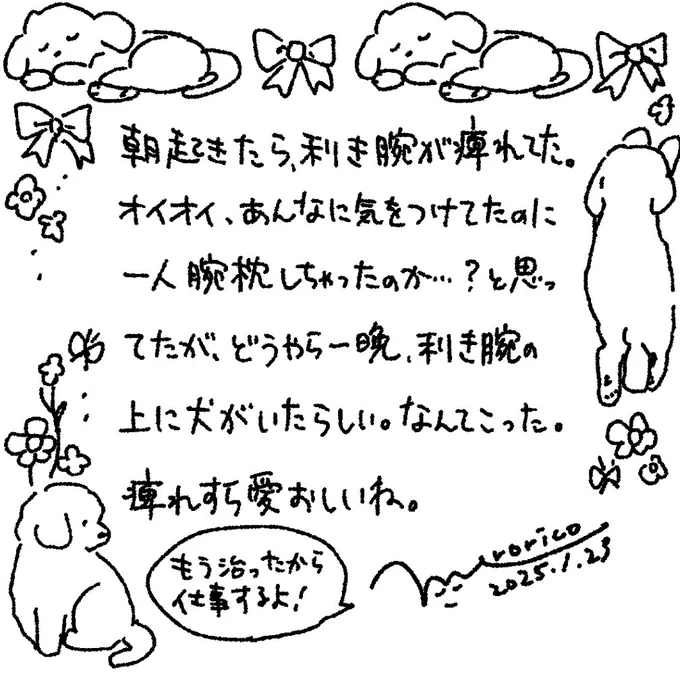 朝起きたら、利き腕が痺れてた。
オイオイ、あんなに気をつけてたのに
一人腕枕しちゃったのか…？と思っ
てたが、どうやら一晩、利き腕の
上に犬がいたらしい。なんてこった。
痺れすら愛おしいね。
もう治ったから
仕事するよ！
rorico
2025.1.23